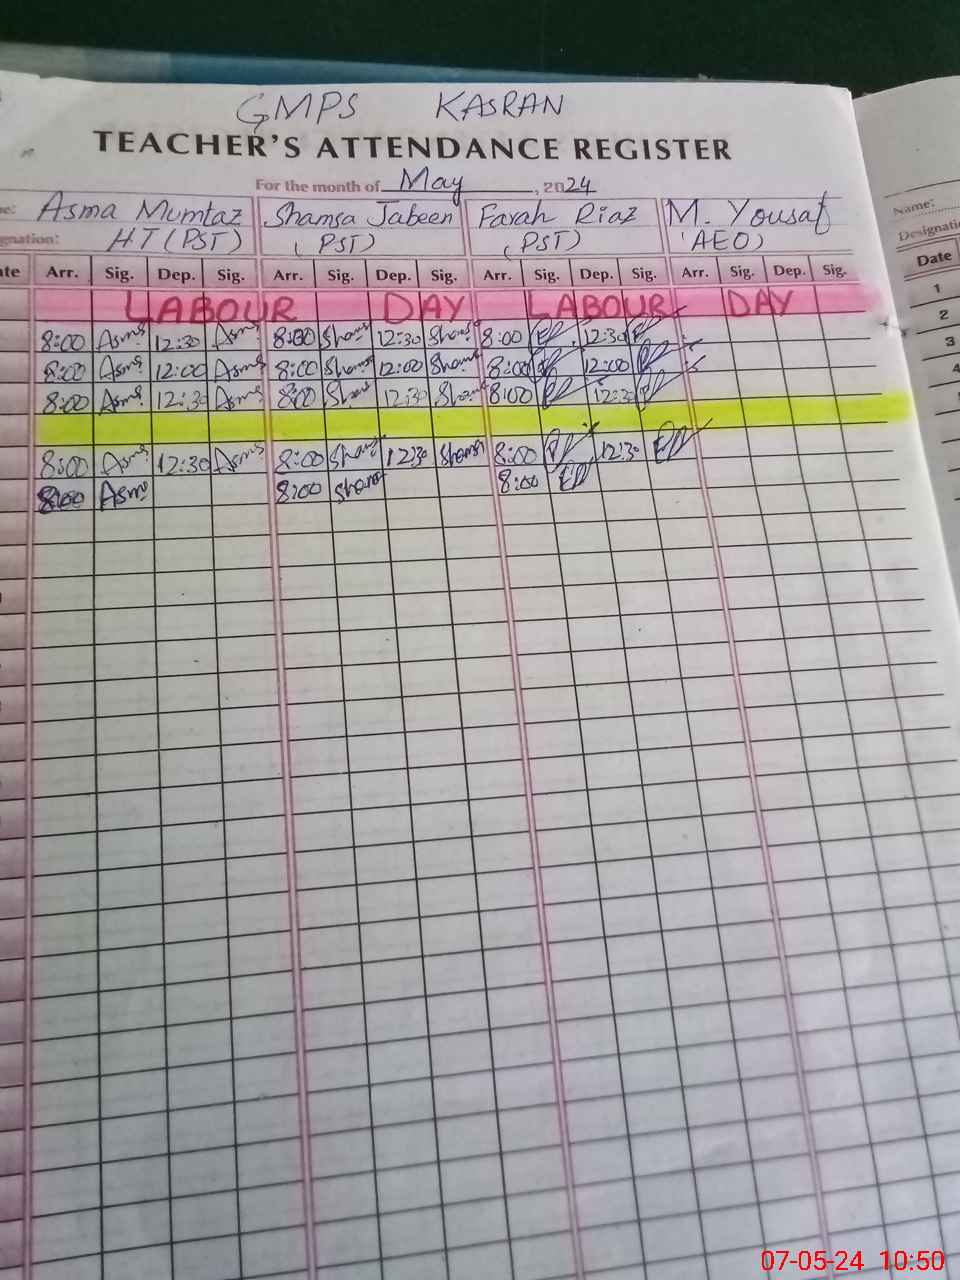 GMPS KASRAN
TEACHER'S ATTENDANCE REGISTER
For the month of May, 2024
Asma Mumtaz Shamsa Jabeen Farah Riaz M. Yousaf
HT (PST) (PST) (PST) (AEO)
Arr. Sig. Dep. Sig. Arr. Sig. Dep. Sig. Arr. Sig. Dep. Sig. Arr. Sig. Dep. Sig.
LABOUR DAY LABOUR DAY
8:00 Asma 12:30 Asma 8:00 Sham 12:30 Sham 8:00 12:30
8:00 Asma 12:00 Asma 8:00 Sham 12:00 Sham 8:00 12:00
8:00 Asma 12:30 Asma 8:00 Sham 12:30 Sham 8:00 12:30
8:00 Asma 12:30 Asma 8:00 Shams 12:30 Shams 8:00 12:30
8:00 Asma 8:00 Shams 8:00
Name:
Designati
Date
1
2
3
4
07-05-24 10:50